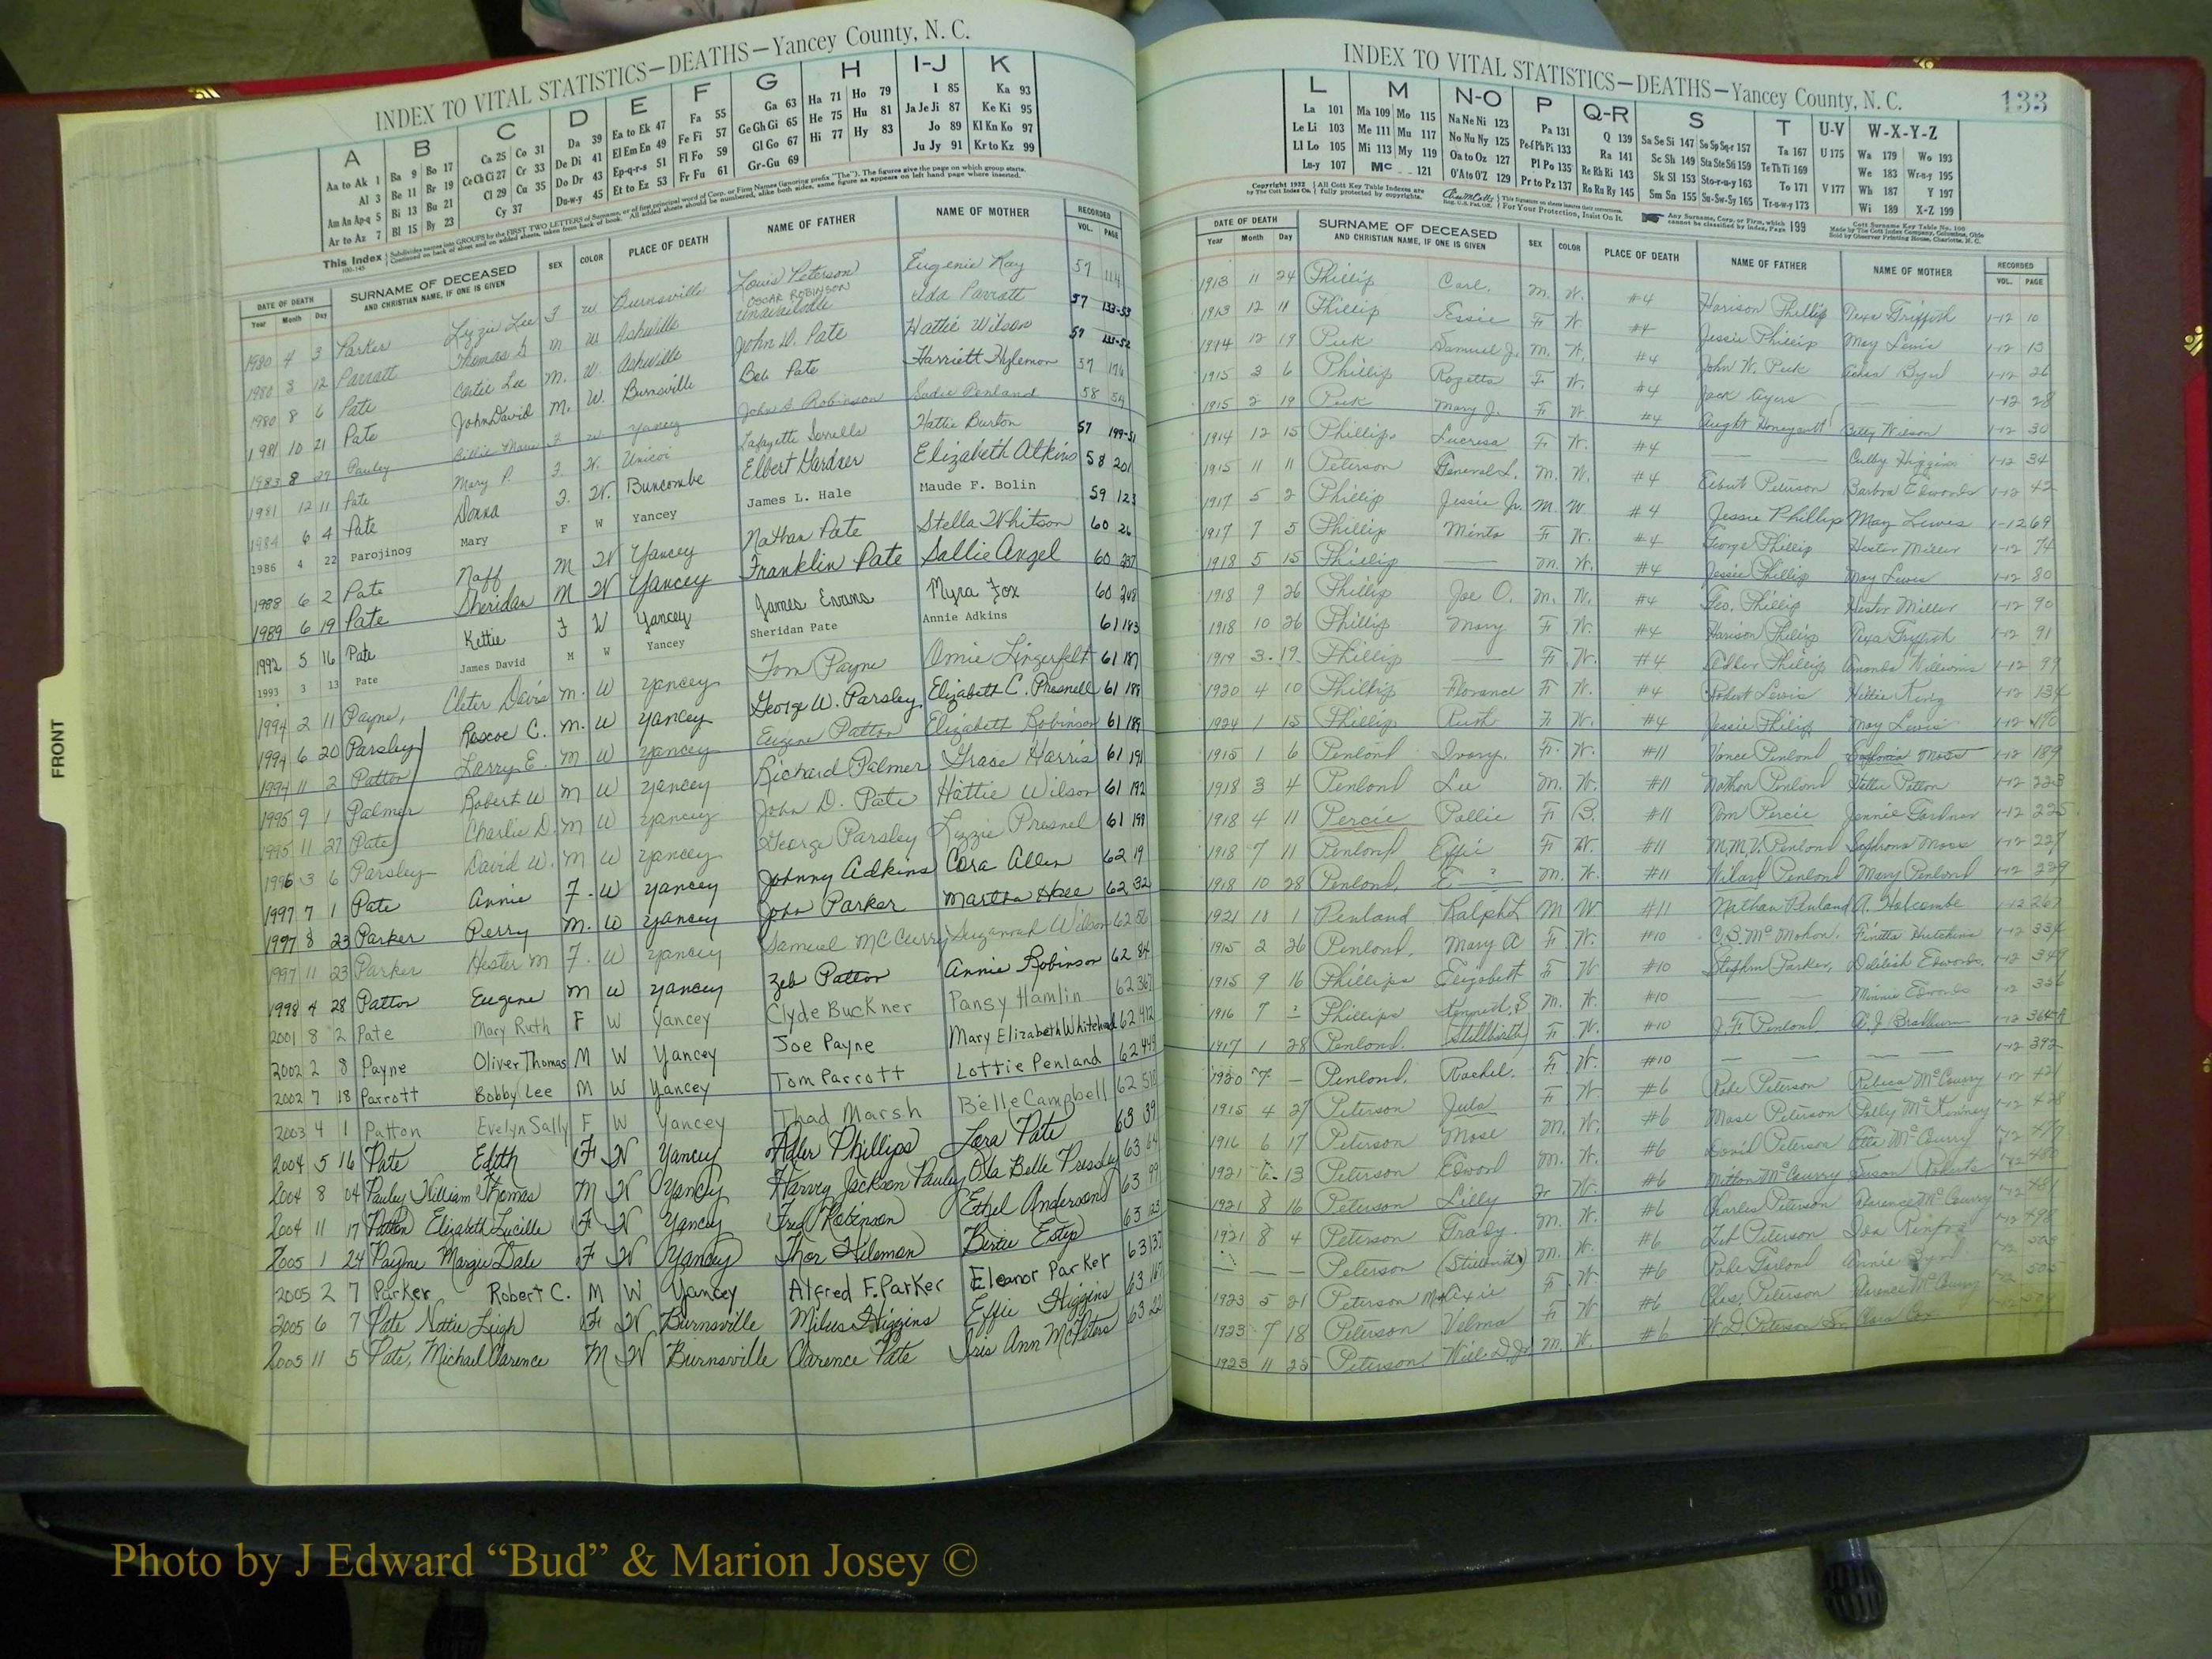 INDEX TO VITAL STATISTICS—DEATHS—Yancey County, N. C.
A B C D E F G H I-J K
Aa to Ak 1 Ba 9 Bo 17 Ca 25 Co 31 Da 39 Ea to Ek 47 Fa 55 Ga 63 Ha 71 Ho 79 I 85 Ka 93
Al 3 Be 11 Br 19 Ce Ch Ci 27 Cr 33 De Di 41 El Em En 49 Fe Fi 57 Ge Gh Gi 65 He 75 Hu 81 Ja Je Ji 87 Ke Ki 95
Am An Ap-q 5 Bi 13 Bu 21 Cl 29 Cu 35 Do Dr 43 Ep-q-r-s 51 Fl Fo 59 Gl Go 67 Hi 77 Hy 83 Jo 89 Kl Kn Ko 97
Ar to Az 7 Bl 15 By 23 Cy 37 Du-w-y 45 Et to Ez 53 Fr Fu 61 Gr-Gu 69 Ju Jy 91 Kr to Kz 99
This Index
DATE OF DEATH SURNAME OF DECEASED SEX COLOR PLACE OF DEATH NAME OF FATHER NAME OF MOTHER RECORDED
Year Month Day AND CHRISTIAN NAME, IF ONE IS GIVEN VOL. PAGE
1980 4 3 Parker Lizzie Lee F W Burnsville Louis Peterson Eugenie Ray 57 114
OSCAR ROBINSON
1980 3 12 Parratt Thomas G M W Asheville unavailable Ida Parratt 57 133-53
1980 8 6 Pate Cartie Lee M. W. Asheville John D. Pate Hattie Wilson 57 135-52
1981 10 21 Pate John David M. W. Burnsville Bob Pate Harriett Hylemon 57 176
1983 8 27 Pauley Billie Marie F W Yancey John S Robinson Sadie Penland 58 54
1981 12 11 Pate Mary P. F. W. Unicoi Lafayette Sorrells Hattie Burton 57 199-51
1984 6 4 Pate Donna F. W. Buncombe Elbert Gardner Elizabeth Atkins 58 201
1986 4 22 Parojinog Mary F W Yancey James L. Hale Maude F. Bolin 59 123
1988 6 2 Pate Naff M W Yancey Nathan Pate Stella Whitson 60 26
1989 6 19 Pate Sheridan M W Yancey Franklin Pate Sallie Angel 60 237
1992 5 16 Pate Kettie F W Yancey James Evans Myra Fox 60 248
1993 3 13 Pate James David M W Yancey Sheridan Pate Annie Adkins 61 183
1994 2 11 Payne, Cleter Davis M. W Yancey Tom Payne Omie Lingerfelt 61 187
1994 6 20 Parsley Roscoe C. M. W Yancey George W. Parsley Elizabeth C. Presnell 61 188
1994 11 2 Patton Larry E. M W Yancey Eugene Patton Elizabeth Robinson 61 189
1995 9 1 Palmer Robert W M W Yancey Richard Palmer Grace Harris 61 191
1995 11 27 Pate Charlie D. M W Yancey John D. Pate Hattie Wilson 61 192
1996 3 6 Parsley David W. M W Yancey George Parsley Lizzie Presnel 61 198
1997 7 1 Pate Annie F. W Yancey Johnny Adkins Cora Allen 62 19
1997 8 23 Parker Perry M. W Yancey John Parker Martha Hall 62 32
1997 11 23 Parker Hester M F. W Yancey Samuel McCurry Suzannah Wilson 62 56
1998 4 28 Patton Eugene M W Yancey Zeb Patton Annie Robinson 62 84
2001 8 2 Pate Mary Ruth F W Yancey Clyde Buckner Pansy Hamlin 62 367
2002 2 8 Payne Oliver Thomas M W Yancey Joe Payne Mary Elizabeth Whitehead 62 412
2002 7 18 Parrott Bobby Lee M W Yancey Tom Parrott Lottie Penland 62 449
2003 4 1 Patton Evelyn Sally F W Yancey Thad Marsh Belle Campbell 62 518
2004 5 16 Pate Edith F W Yancey Adler Phillips Lora Pate 63 39
2004 8 04 Pauley William Thomas M W Yancey Harvey Jackson Pauley Ola Belle Pressley 63 64
2004 11 17 Patton Elizabeth Lucille F W Yancey Fred Robinson Ethel Anderson 63 99
2005 1 24 Payne Margie Dale F W Yancey Thor Hileman Bertie Estep 63
2005 2 7 Parker Robert C. M W Yancey Alfred F. Parker Eleanor Parker 63 137
2005 6 7 Pate Nettie Leigh F W Burnsville Milus Higgins Effie Higgins 63 167
2005 11 5 Pate, Michael Clarence M W Burnsville Clarence Pate Iris Ann McPeters 63
FRONT
INDEX TO VITAL STATISTICS—DEATHS—Yancey County, N. C. 133
L M N-O P Q-R S T U-V W-X-Y-Z
La 101 Ma 109 Mo 115 Na Ne Ni 123 Pa 131 Q 139 Sa Se Si 147 So Sp Sq-r 157 Ta 167 U 175 Wa 179 Wo 193
Le Li 103 Me 111 Mu 117 No Nu Ny 125 Pe-f Ph Pi 133 Ra 141 Sc Sh 149 Sta Ste Sti 159 Te Th Ti 169 We 183 Wr-u-y 195
Ll Lo 105 Mi 113 My 119 Oa to Oz 127 Pl Po 135 Re Rh Ri 143 Sk Sl 153 Sto-r-u-y 163 To 171 V 177 Wh 187 Y 197
Lu-y 107 Mc 121 O'A to O'Z 129 Pr to Pz 137 Ro Ru Ry 145 Sm Sn 155 Su-Sw-Sy 165 Tr-u-w-y 173 Wi 189 X-Z 199
DATE OF DEATH SURNAME OF DECEASED SEX COLOR PLACE OF DEATH NAME OF FATHER NAME OF MOTHER RECORDED
Year Month Day AND CHRISTIAN NAME, IF ONE IS GIVEN VOL. PAGE
1913 11 24 Phillip Carl. M. W. #4 Harison Phillip Texa Griffith 1-12 10
1913 12 11 Phillip Essie F W #4 Jessie Phillip May Lewis 1-12 13
1914 12 19 Peek Samuel J. M. W. #4 John W. Peek Byrd 1-12 26
1915 3 6 Phillip Rozetta F W. #4 Jack Ayers — 1-12 28
1915 2 19 Peek Mary J. F W #4 Honeycutt Betty Wilson 1-12 30
1914 12 15 Phillip Lucresa F W. #4 — Culby Higgins 1-12 34
1915 11 11 Peterson General L. M. W. #4 Elbert Peterson Barbra Edwards 1-12 42
1917 5 2 Phillip Jessie Jr. M. W. #4 Jessie Phillip May Lewis 1-12 69
1917 7 5 Phillip Minta F W. #4 George Phillip Hester Miller 1-12 74
1918 5 15 Phillip — M. W. #4 Jessie Phillip May Lewis 1-12 80
1918 9 26 Phillip Joe O. M. W. #4 Geo. Phillip Hester Miller 1-12 90
1918 10 26 Phillip Mary F W. #4 Harison Phillip Texa Griffith 1-12 91
1919 3 19 Phillip — F. W. #4 Adler Phillip Amanda Williams 1-12 99
1920 4 10 Phillip Florance F W. #4 Robert Lewis Hettie King 1-12 134
1924 1 15 Phillip Ruth F. W. #4 Jessie Phillip May Lewis 1-12 170
1915 1 6 Penland Ivory. F. W. #11 Vance Penland Moss 1-12 189
1918 3 4 Penland Lee M. W. #11 Nathan Penland Hettie Patton 1-12 223
1918 4 11 Percie Pollie F B. #11 Tom Percie Jennie Gardner 1-12 225
1918 7 11 Penland Effie F W. #11 M.M.V. Penland Moss 1-12 227
1918 10 28 Penland, E—? M. W. #11 Wilard Penland Mary Penland 1-12 239
1921 10 1 Penland Ralph L M W #11 Nathan Penland A. Holcombe 1-12 267
1915 2 26 Penland, Mary A F W. #10 C.B. McMahan, Finetta Hutchins 1-12 334
1915 9 16 Phillips Elizabeth F W #10 Stephen Parker, Edwards. 1-12 349
1916 7 ? Phillips M. W. #10 — Minnie Edwards 1-12 356
1917 1 28 Penland. (Stillbirth) F W. #10 J. F. Penland A. J. Bradburn 1-12 364-A
1920 7 — Penland. Rachel. F W. #10 — — 1-12 392
1915 4 27 Peterson Jula F W. #6 Robe Peterson Rebeca McCourry 1-12 421
1916 6 17 Peterson Mose M. W. #6 Mose Peterson Polly McKinney 1-12 428
1921 6 13 Peterson Edward M. W. #6 David Peterson Etta McCourry 1-12 477
1921 8 16 Peterson Lilly F W. #6 Milton McCourry Susan Roberts 1-12 480
1921 8 4 Peterson Grady. M. W. #6 Charles Peterson Clarence McCourry 1-12 481
— — — Peterson (Stillbirth) M. W. #6 Zeb Peterson 1-12 498
1923 5 21 Peterson F W. #6 Robe Garland Annie Byrd 1-12 503
1923 7 18 Peterson Velma F W #6 Chas. Peterson Clarence McCourry 1-12 505
1923 11 25 Peterson Will D. Jr. M. W. #6 W. D. Peterson Sr. Clara Cox
Photo by J Edward “Bud” & Marion Josey ©